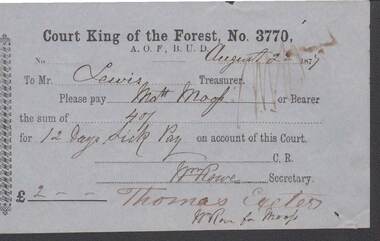 Court King of the Forest, No. 3770,
A. O. F., B. U. D.
No. August 2 1877
To Mr. Lewis Treasurer.
Please pay Matt Mogg or Bearer
the sum of 40/
for 12 Days Sick Pay on account of this Court.
C. R.
Wm Rowe Secretary.
£ 2 - -
Thomas Exeter
W Rowe for Mogg